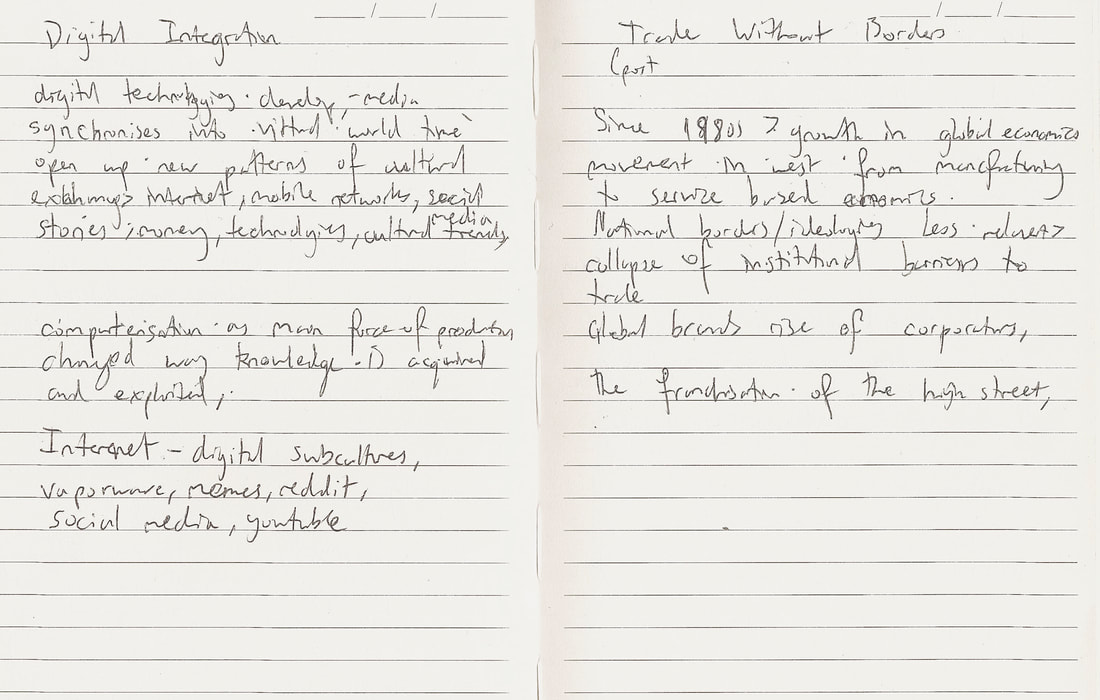 Digital Integration
digital technologies develop, - media
synchronises into virtual 'world time'
open up new patterns of cultural
exchange > internet, mobile networks, social
media
stories; money, technologies, cultural trends,
computerisation as main force of production,
changed way knowledge is acquired
and exploited,
Internet - digital subcultures,
vaporwave, memes, reddit,
social media, youtube
Trade Without Borders
Since 1980s > growth in global economics
movement in west from manufacturing
to service based economics.
National borders/ideologies less relevant >
collapse of institutional barriers to
trade
Global brands rise of corporations,
the franchisation of the high street,